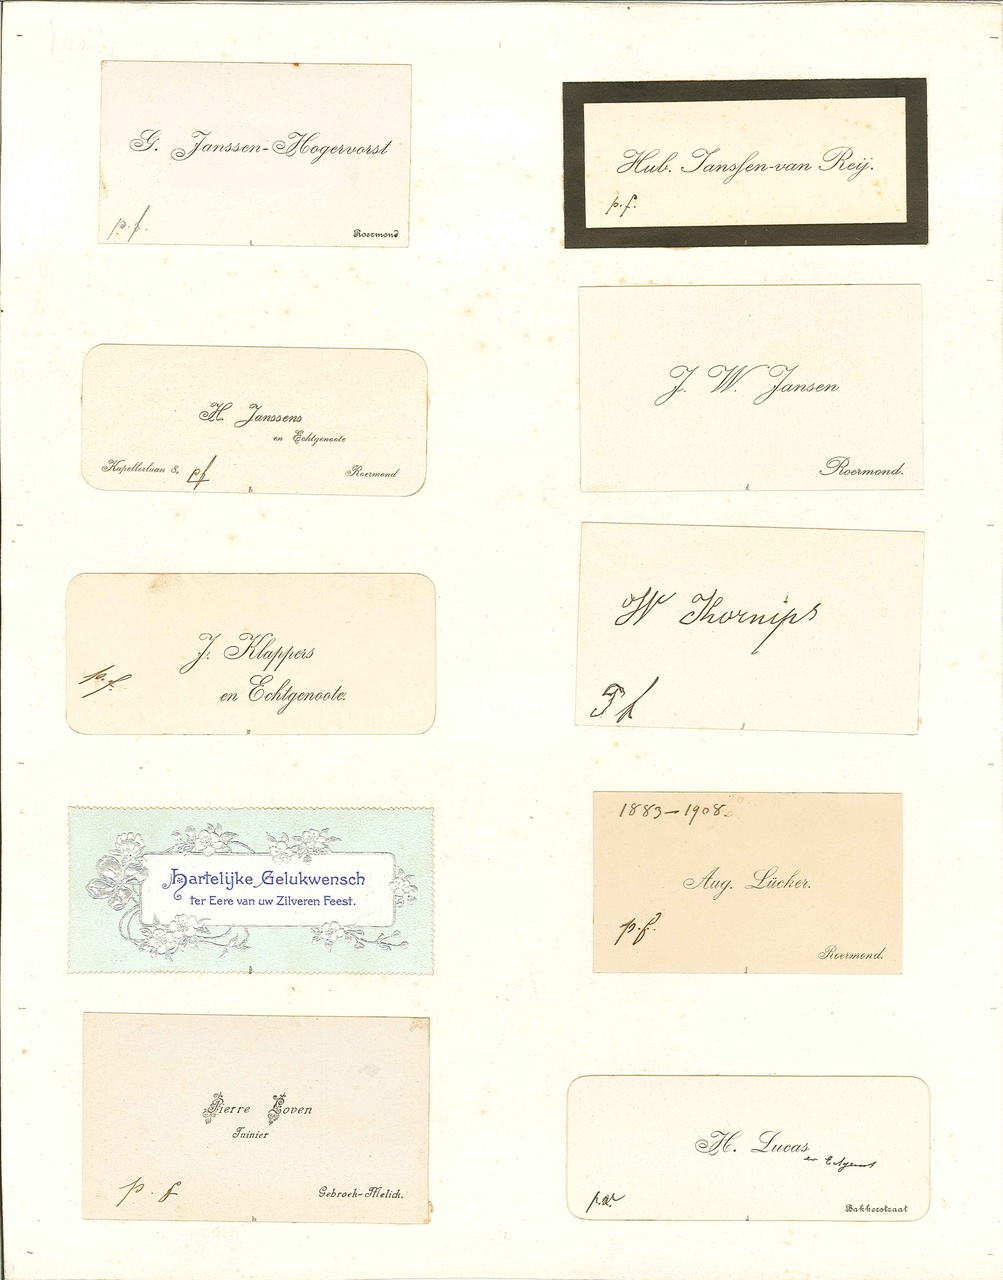 G. Janssen-Hogervorst
p.f.
Roermond
Hub. Janssen-van Reij.
p.f.
H. Janssens
en Echtgenoote
Kapellerlaan 8,
pf
Roermond
J. W. Jansen
Roermond.
J. Klappers
en Echtgenoote.
p.f.
W Thornips
Pf
Hartelijke Gelukwensch
ter Eere van uw Zilveren Feest.
1883-1908.
Aug. Lücker.
p.f.
Roermond.
Pierre Loven
Tuinier
p. f
Gebroek-Melick.
H. Lucas
en Echtgenoot
Bakkerstraat